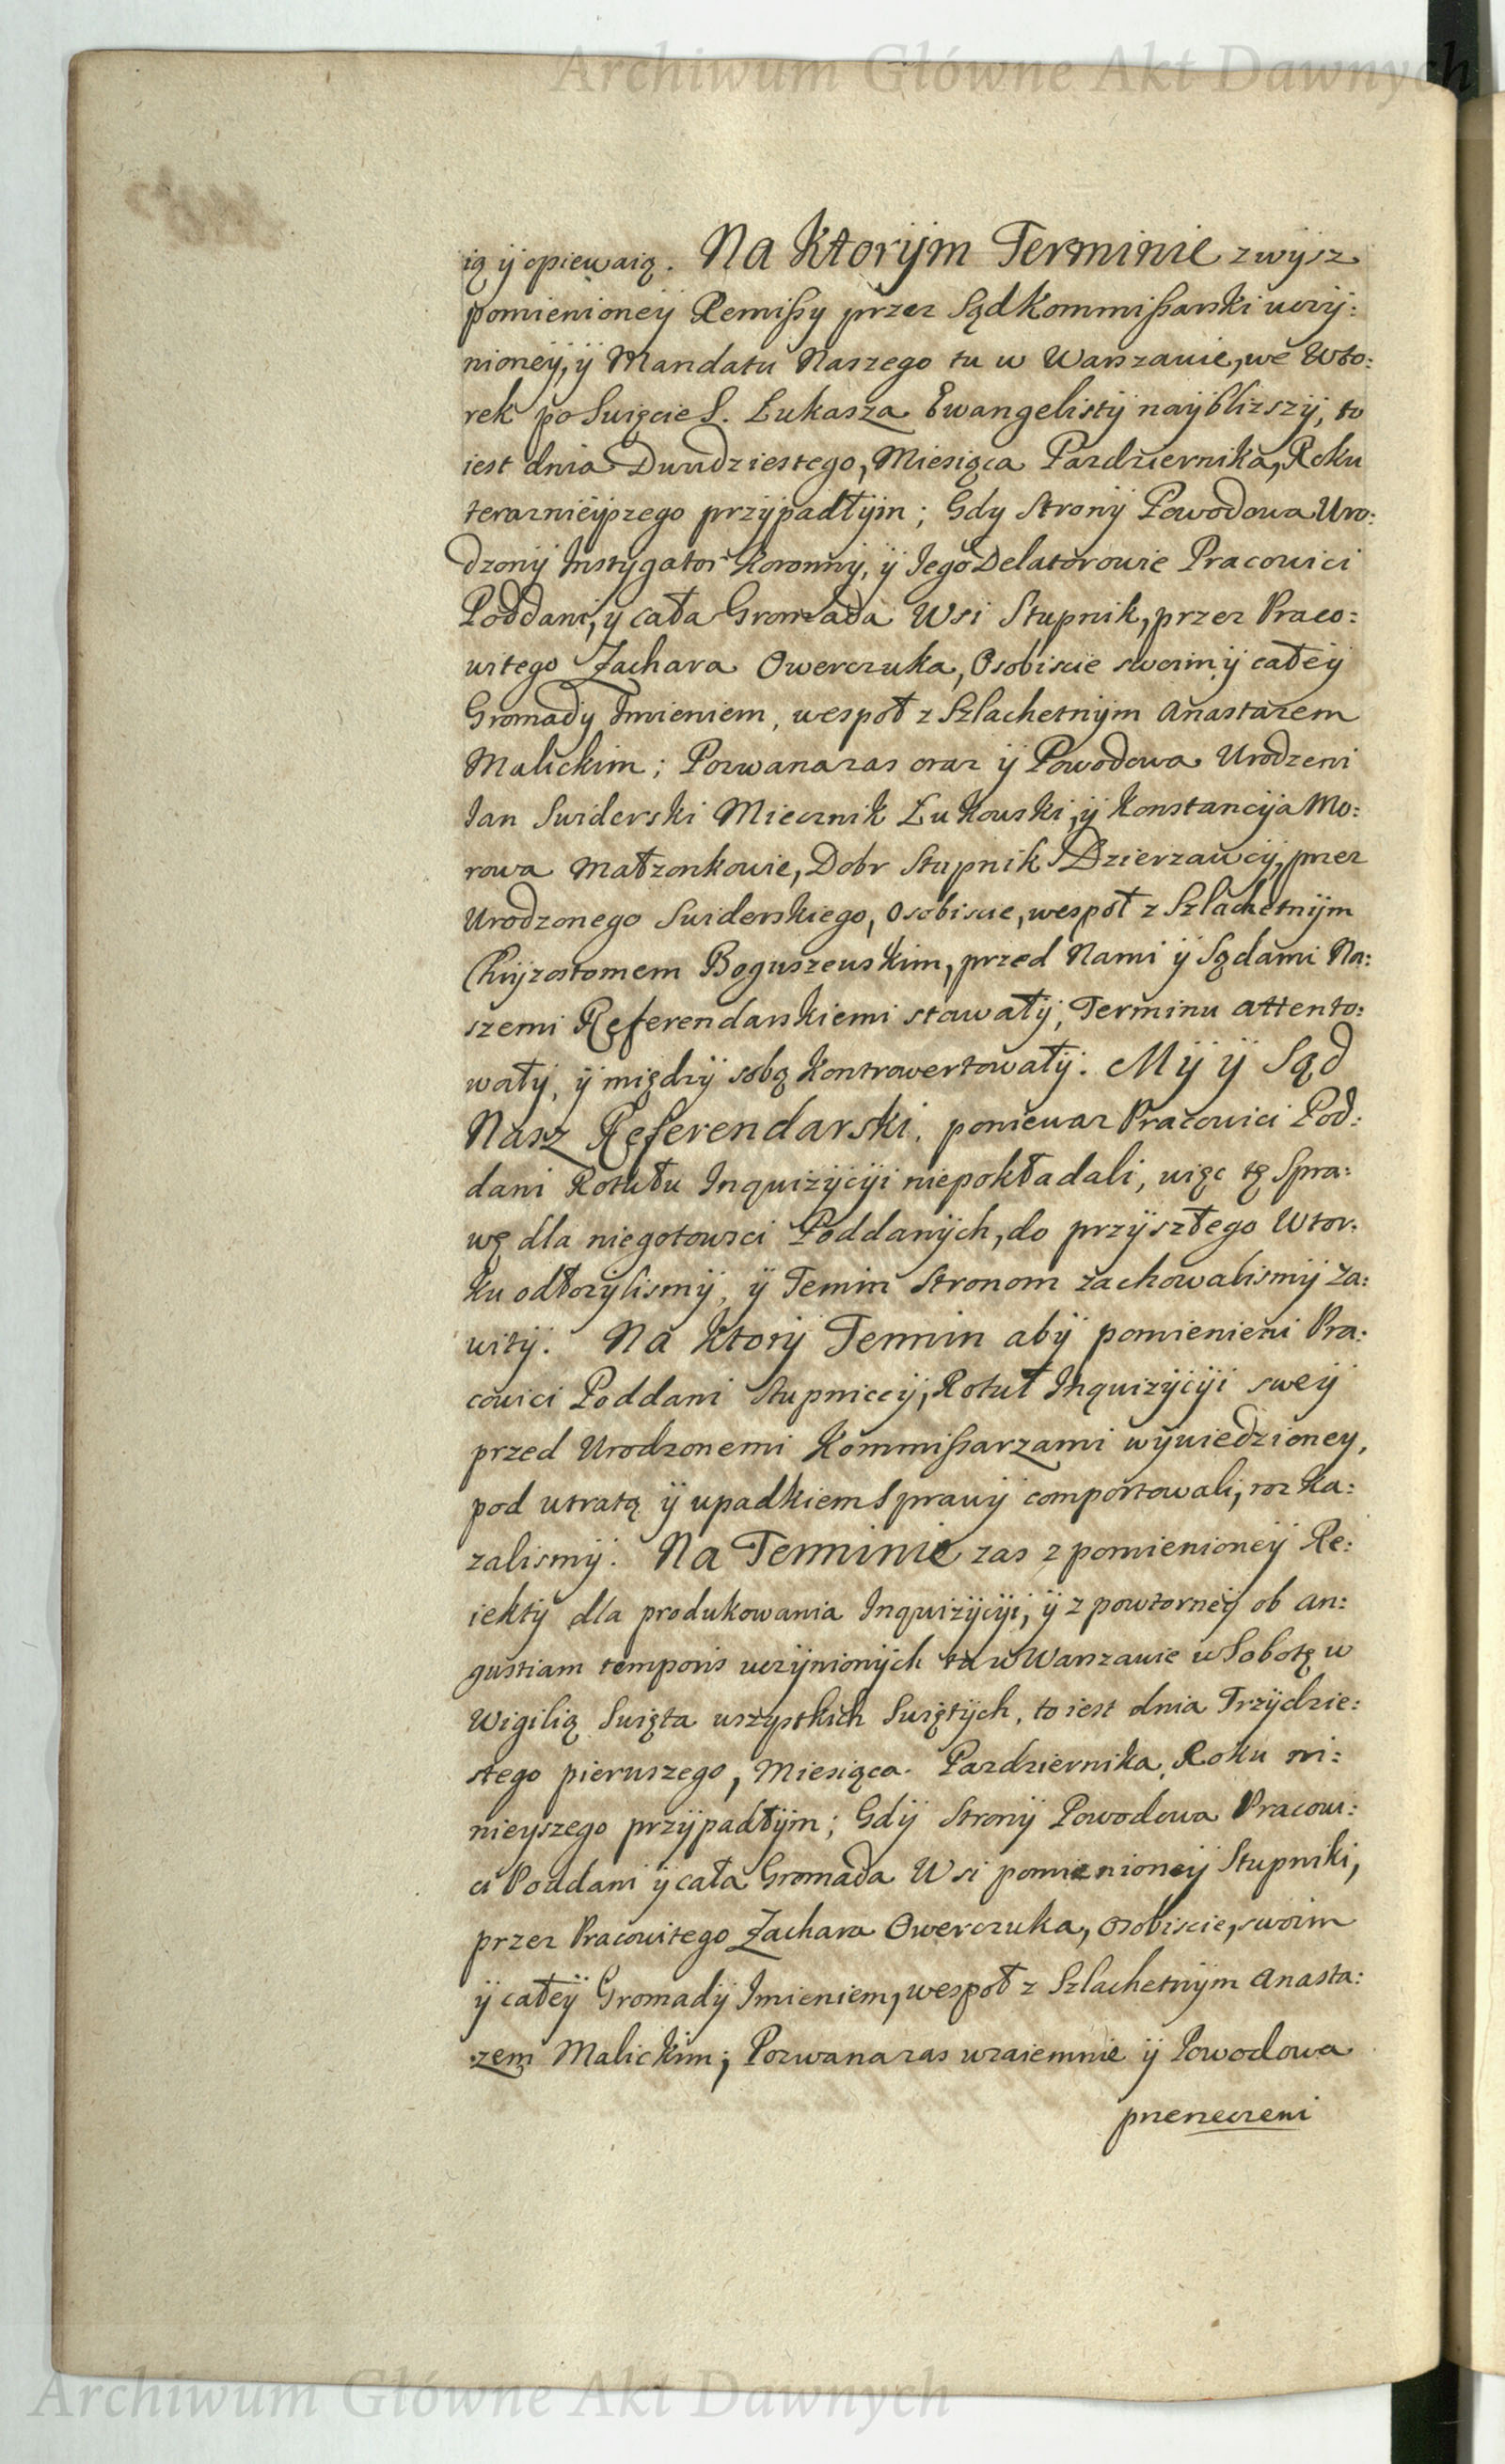 Archiwum Główne Akt Dawnych
ią ÿ opiewaią. Na Ktorÿm Terminie zwÿsz
pomienioneÿ Remißy przez Sąd Kommißarski uczÿ:
nioneÿ, ÿ Mandatu Naszego tu w Warszawie, we Wto:
rek po Swięcie S. Łukasza Ewangelistÿ naÿblizszÿ, to
iest dnia Dwudziestego, Miesiąca Pazdziernika, Roku
teraznieÿszego przÿpadłÿm; Gdy Stronÿ Powodowa Uro:
dzonÿ Instygator Koronnÿ, ÿ Jego Delatorowie Pracowici
Poddani, y cała Gromada Wsi Stupnik, przez Praco:
witego Zachara Owerczuka, Osobiscie swoim ÿ całeÿ
Gromady Imieniem, wespoł z Szlachetnÿm Anastazem
Malickim; Pozwana zas oraz ÿ Powodowa Urodzeni
Jan Swiderski Miecznik Łukowski, ÿ Konstancÿa Mo:
rowa Małzonkowie, Dobr Stupnik Dzierzawcÿ, przez
Urodzonego Swiderskiego, Osobiscie, wespoł z Szlachetnÿm
Chrÿzostomem Boguszewskim, przed Nami ÿ Sądami Na:
szemi Referendarskiemi stawałÿ, Terminu attento:
wałÿ, ÿ międzÿ sobą kontrowertowałÿ. Mÿ ÿ Sąd
Nasz Referendarski, poniewaz Pracowici Pod:
dani Rotułu Inquizÿcÿi niepokładali, więc tę Spra:
wę dla niegotowsci Poddanÿch, do przÿszłego Wtor:
ku odłozÿlismÿ, ÿ Temin Stronom zachowalismÿ Za:
witÿ. Na Ktorÿ Termin abÿ pomienieni Pra:
cowici Poddani Stupniccÿ, Rotuł Inquizÿcÿi sweÿ
przed Urodzonemi Kommißarzami wÿwiedzioney,
pod utratą ÿ upadkiem Sprawÿ comportowali, rozka:
zalismÿ. Na Terminie zas z pomienioneÿ Re:
iektÿ dla produkowania Inquizÿcÿi, ÿ z powtorneÿ ob an:
gustiam temporis uczÿnionÿch tu w Warszawie w Sobotę w
Wigilią Swięta wszystkich Swiętÿch, to iest dnia Trzÿdzie:
stego pierwszego, Miesiąca Pazdziernika, Roku ni:
nieyszego przÿpadłÿm; Gdÿ Stronÿ Powodowa Pracowi:
ci Poddani ÿ cała Gromada Wsi pomienioneÿ Stupniki,
przez Pracowitego Zachara Owerczuka, osobiscie, swoim
ÿ całeÿ Gromadÿ Imieniem, wespoł z Szlachetnÿm Anasta:
zem Malickim; Pozwana zas wzaiemnie ÿ Powodowa
przerzeczeni
Archiwum Główne Akt Dawnych